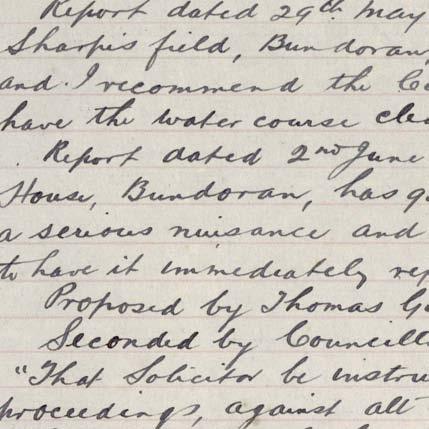 Report dated 29th May
Sharpe's field, Bundoran,
and I recommend the Co
have the water course clea
Report dated 2nd June
House, Bundoran, has g
a serious nuisance and
to have it immediately rep
Proposed by Thomas G
Seconded by Councill
"That Solicitor be instru
proceedings, against all